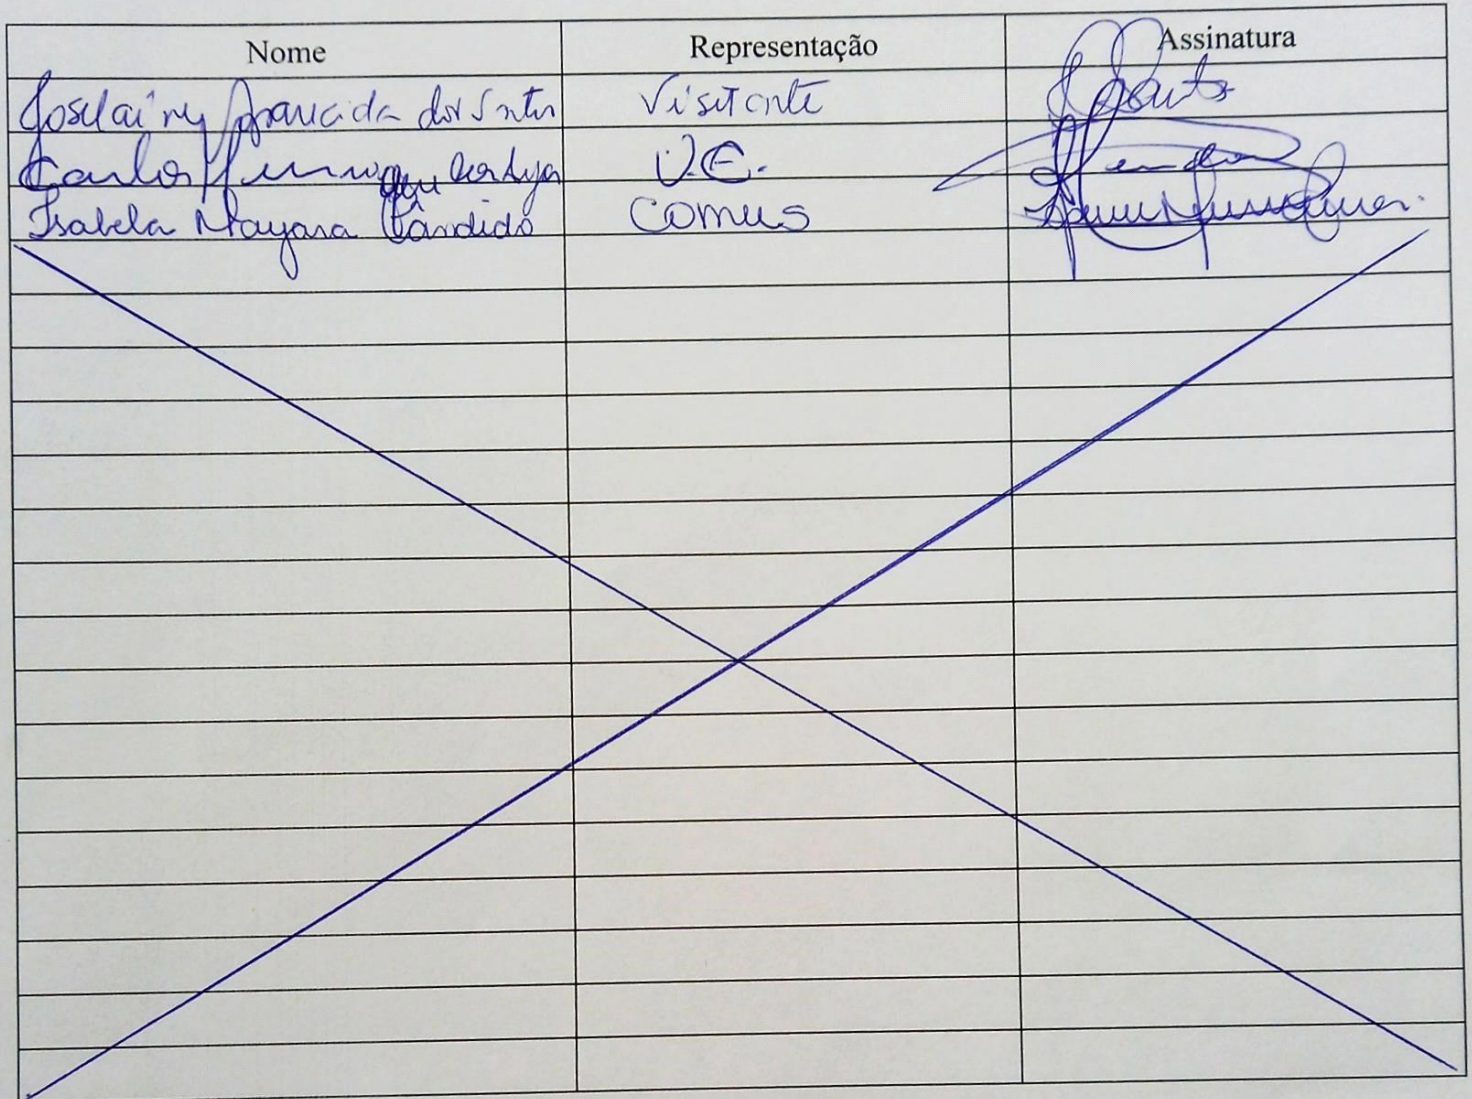 Nome Representação Assinatura
Joselaine Aparecida dos Santos Visitante
Carlos Henrique V.E.
Isabela Mayara Cândido Comus